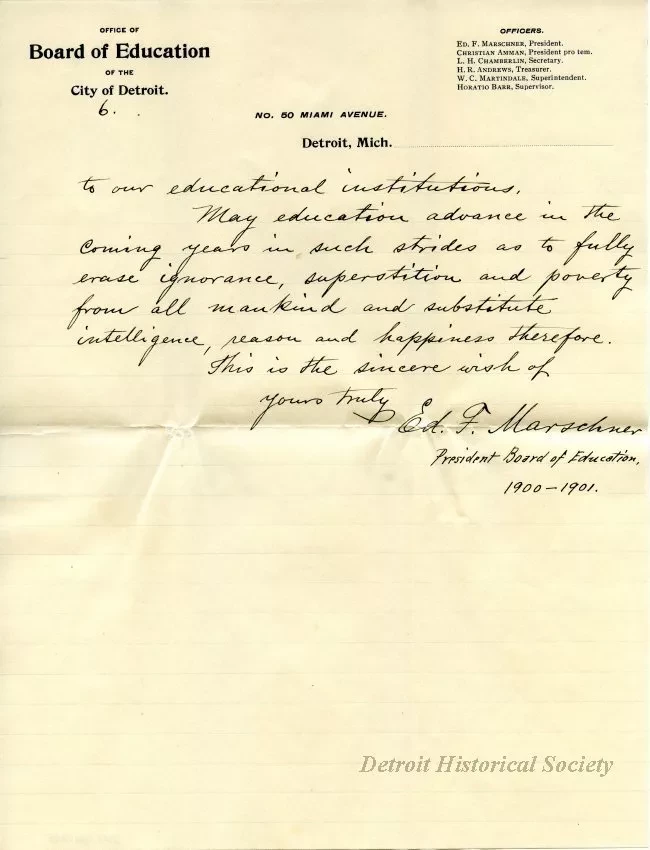 OFFICE OF
Board of Education
OF THE
City of Detroit.
6.
OFFICERS.
ED. F. MARSCHNER, President.
CHRISTIAN AMMAN, President pro tem.
L. H. CHAMBERLIN, Secretary.
H. R. ANDREWS, Treasurer.
W. C. MARTINDALE, Superintendent.
HORATIO BARR, Supervisor.
NO. 50 MIAMI AVENUE.
Detroit, Mich.
to our educational institutions.
May education advance in the
coming years in such strides as to fully
erase ignorance, superstition and poverty
from all mankind and substitute
intelligence, reason and happiness therefore.
This is the sincere wish of
yours truly
Ed. F. Marschner
President Board of Education,
1900-1901.
Detroit Historical Society